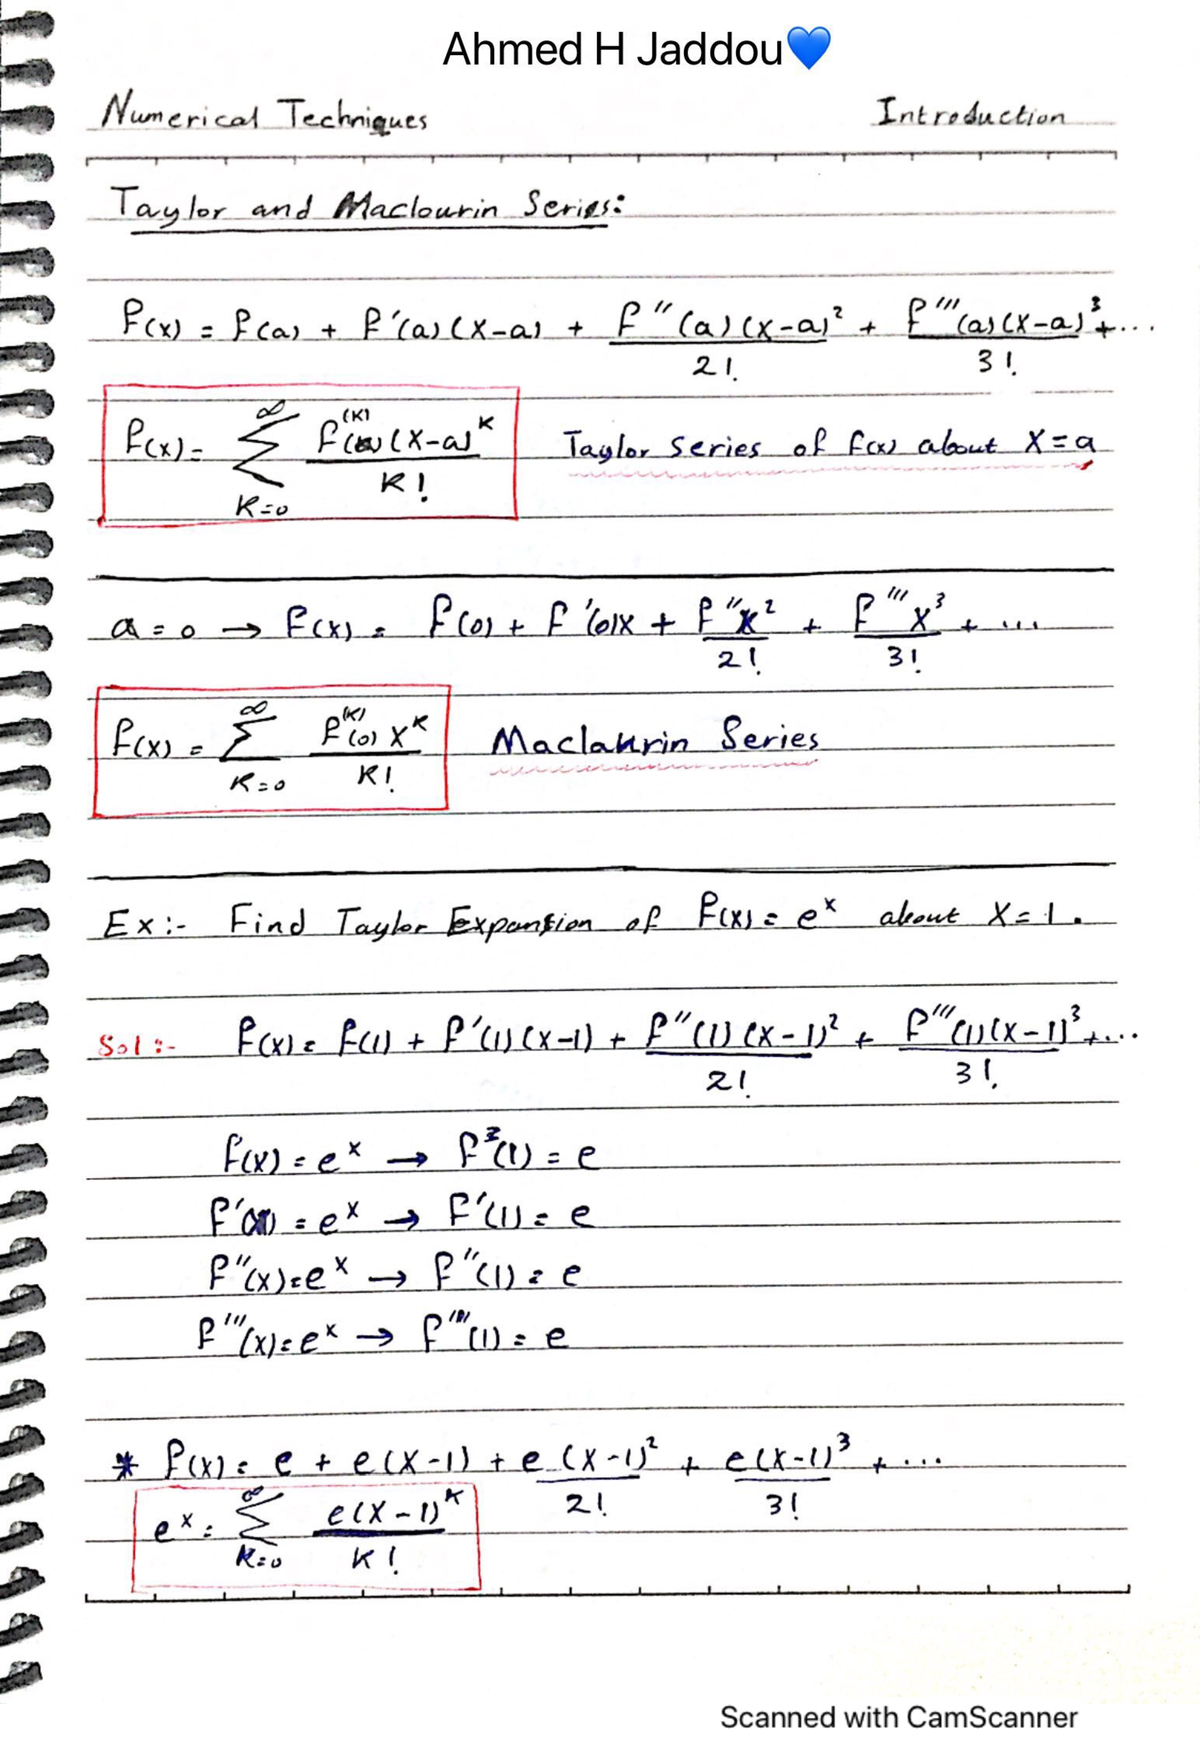 Ahmed H Jaddou💙
Numerical Techniques Introduction
Taylor and Maclourin Series:
f(x) = f(a) + f'(a)(x-a) + f''(a)(x-a)²/2! + f'''(a)(x-a)³/3! + ...
f(x) = ∞∑K=0 f^(K)(a)(x-a)^K/K! Taylor series of f(x) about X=a
a=0 → f(x) = f(0) + f'(0)x + f''x²/2! + f'''x³/3! + ...
f(x) = ∞∑K=0 f^(K)(0) x^K/K! Maclaurin Series
Ex:- Find Taylor Expansion of f(x) = e^x about X=1.
Sol:- f(x) = f(1) + f'(1)(x-1) + f''(1)(x-1)²/2! + f'''(1)(x-1)³/3! + ...
f(x) = e^x → f(1) = e
f'(x) = e^x → f'(1) = e
f''(x) = e^x → f''(1) = e
f'''(x) = e^x → f'''(1) = e
* f(x) = e + e(x-1) + e(x-1)²/2! + e(x-1)³/3! + ...
e^x = ∞∑K=0 e(x-1)^K/K!
Scanned with CamScanner